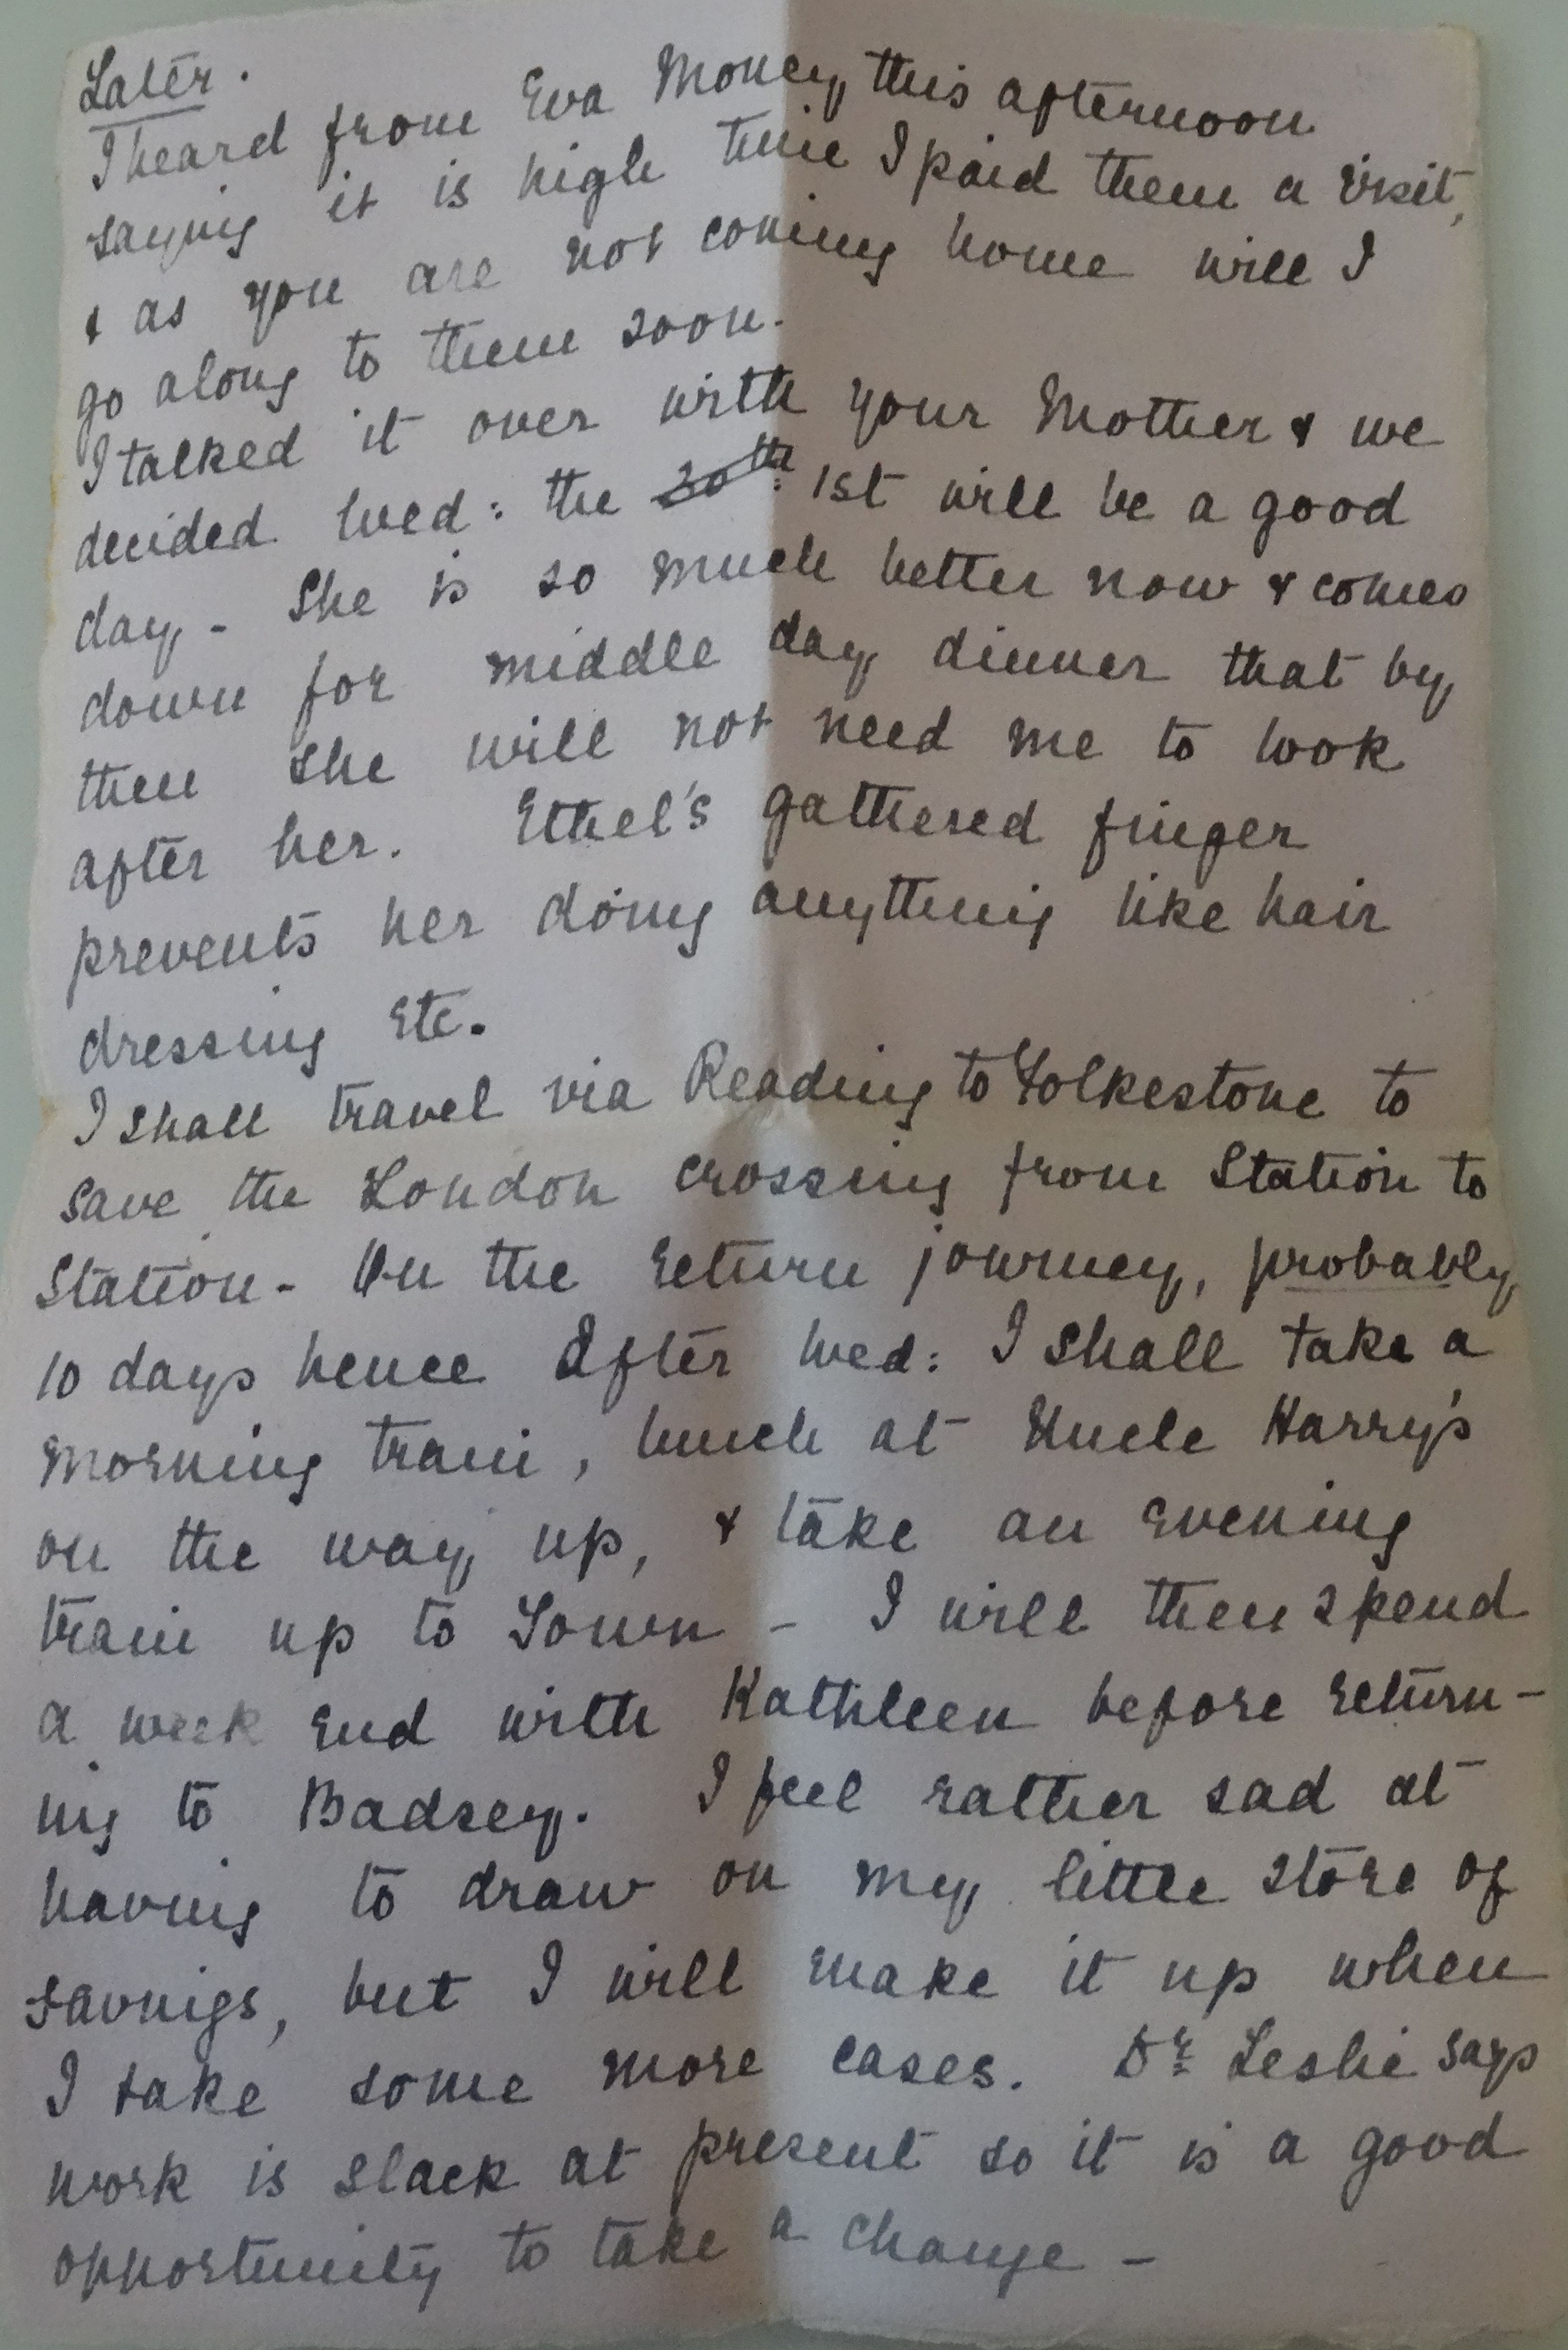 Later.
I heard from Eva Money this afternoon
saying it is high time I paid them a visit,
& as you are not coming home will I
go along to them soon.
I talked it over with your Mother & we
decided Wed: the 30th 1st will be a good
day - She is so much better now & comes
down for middle day dinner that by
then she will not need me to look
after her. Ethel's gathered finger
prevents her doing anything like hair
dressing etc.
I shall travel via Reading to Folkestone to
save the London crossing from Station to
Station - On the return journey, probably
10 days hence after Wed: I shall take a
morning train, lunch at Uncle Harry's
on the way up, & take an evening
train up to Town - I will then spend
a week end with Kathleen before return-
ing to Badsey. I feel rather sad at
having to draw on my little store of
savings, but I will make it up when
I take some more cases. Dr Leslie says
work is slack at present so it is a good
opportunity to take a change -